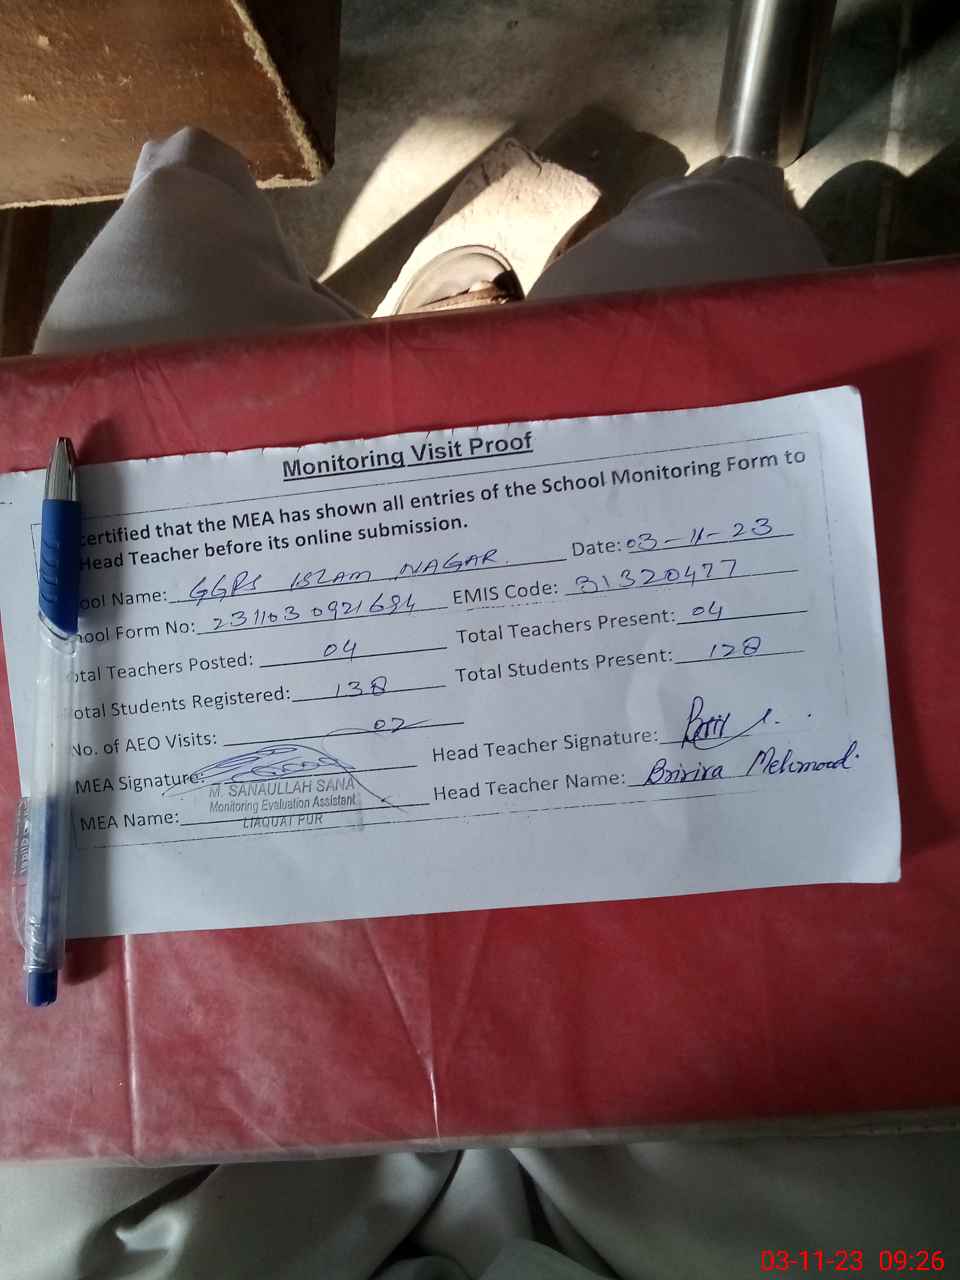 Monitoring Visit Proof
certified that the MEA has shown all entries of the School Monitoring Form to
Head Teacher before its online submission.
ool Name: GGPS ISLAM NAGAR. Date: 03-11-23
hool Form No: 231103 0921684 EMIS Code: 31320477
otal Teachers Posted: 04 Total Teachers Present: 04
otal Students Registered: 138 Total Students Present: 128
No. of AEO Visits: 02
MEA Signature: Head Teacher Signature:
M. SANAULLAH SANA
Monitoring Evaluation Assistant
LIAQUAT PUR
MEA Name: Head Teacher Name: Mehmood.
03-11-23 09:26